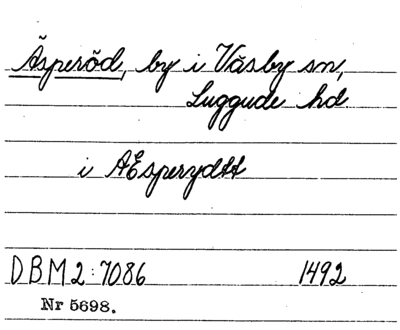 Äsperöd, by i Väsby sn,
Luggude hd.
i AEsperydtt
DBM 2:7086 1492
Nr 5698.